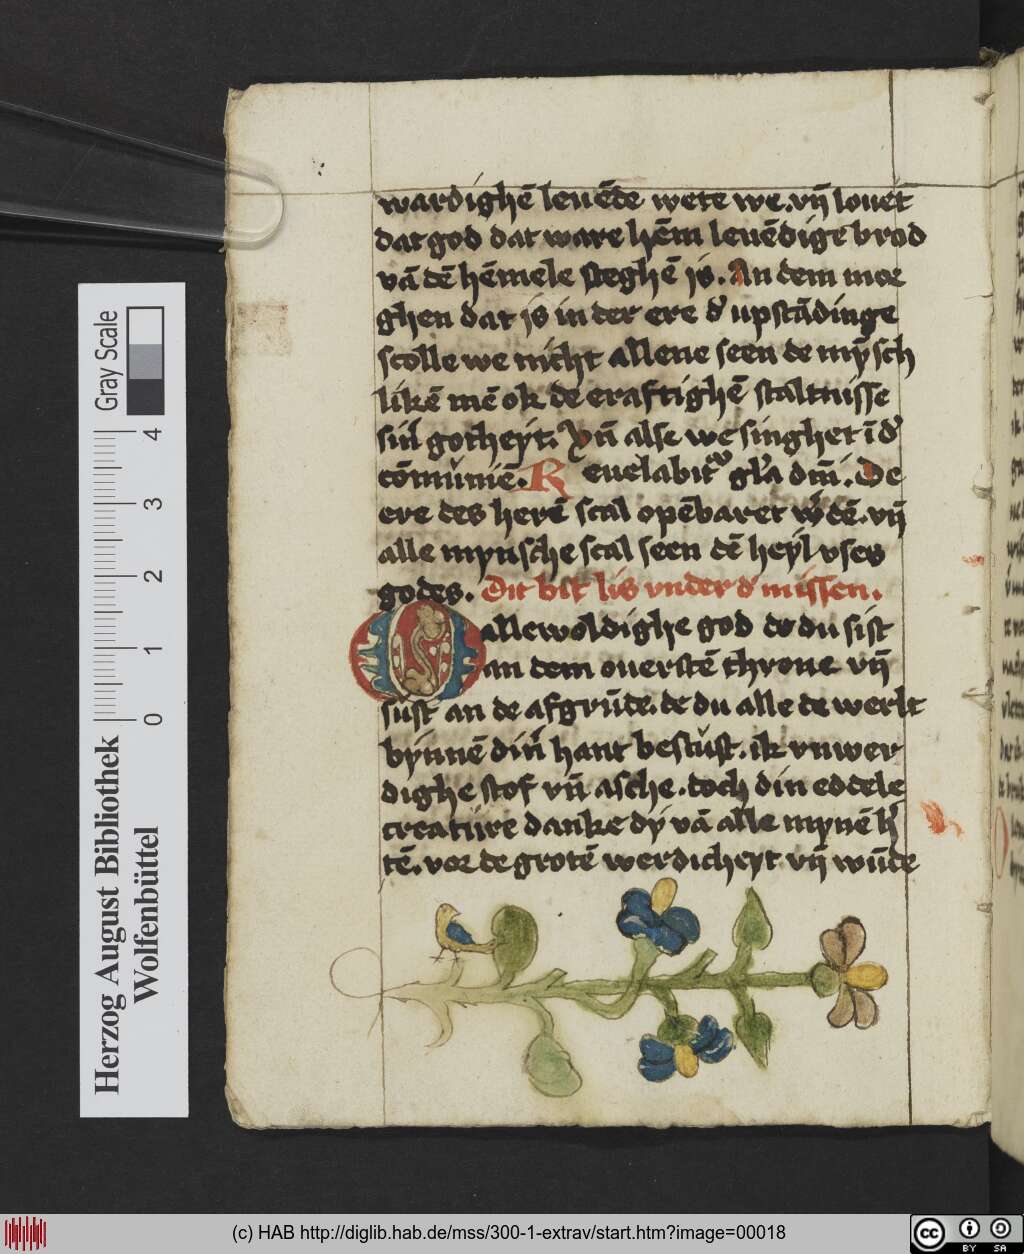 wardighē leuēde wete we. vn̄ louet
dat god dat ware hēm leuēdige brod
vā dē hēmele steghē is. An dem moe
ghen dat is in der ere d' upstādinge
scolle we nicht allene seen de mȳsch
likē mē ok de craftighē staltnisse
sin' gotheyt. Vn̄ alse we singhet ī d'
cōmuniē. R euelabit' gl'a dn̄i. De
ere des herē scal opēbaret w'dē. vn̄
alle mynsche scal seen dē heyl vses
godes. Dit bit lis vnder d' missen.
O allewoldighe god de du sist
an dem ouerstē throne vn̄
sust an de afgrūde. de du alle de werlt
bynnē din' hant beslust. ik vnwer
dighe stof vn̄ asche. doch din eddele
creature danke dy vā alle mynē h'
tē. vor de grotē werdicheyt vn̄ wūde
Gray Scale
0 1 2 3 4
Herzog August Bibliothek
Wolfenbüttel
(c) HAB http://diglib.hab.de/mss/300-1-extrav/start.htm?image=00018
cc BY SA